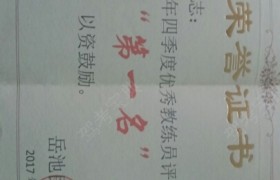 荣誉证书
志：
年四季度优秀教练员评
“第一名”
以资鼓励。
岳池
2017